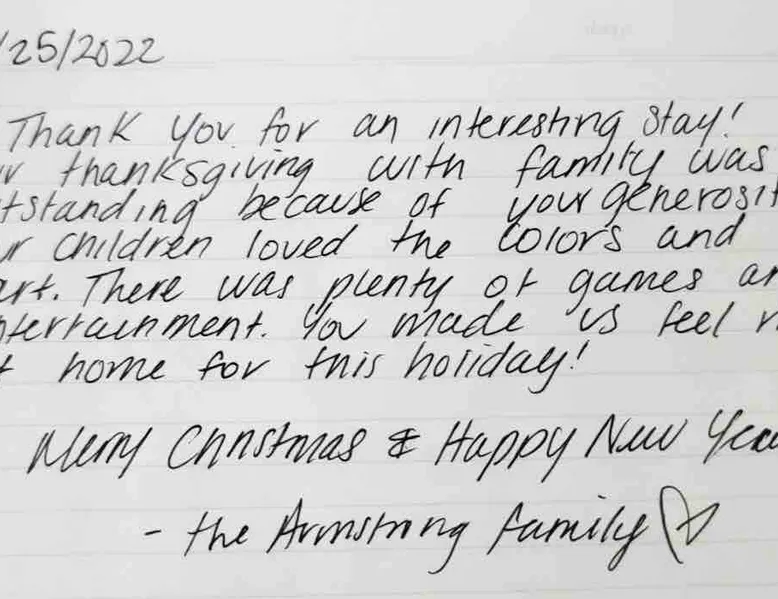 /25/2022
Thank you for an interesting stay!
ur thanksgiving with family was
tstanding because of your generosit
ur children loved the colors and
art. There was plenty of games an
ntertainment. You made us feel r
t home for this holiday!
Merry Christmas & Happy New Yea
- the Armstrong family ♡